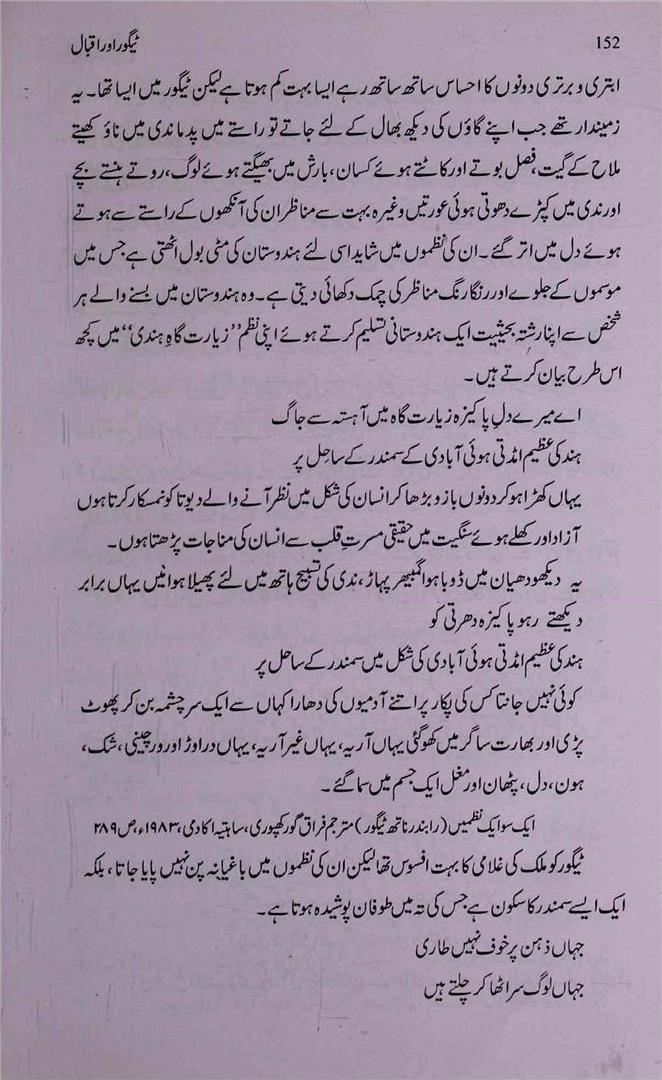 152
ٹیگور اور اقبال
ابتری و برتری دونوں کا احساس ساتھ ساتھ رہے ایسا بہت کم ہوتا ہے لیکن ٹیگور میں ایسا تھا۔ یہ
زمیندار تھے جب اپنے گاؤں کی دیکھ بھال کے لئے جاتے تو راستے میں پدما ندی میں ناؤ کھیتے
ملاح کے گیت، فصل بوتے اور کاٹتے ہوئے کسان، بارش میں بھیگتے ہوئے لوگ، روتے ہنستے بچے
اور ندی میں کپڑے دھوتی ہوئی عورتیں وغیرہ بہت سے مناظر ان کی آنکھوں کے راستے سے ہوتے
ہوئے دل میں اتر گئے۔ ان کی نظموں میں شاید اسی لئے ہندوستان کی مٹی بول اٹھتی ہے جس میں
موسموں کے جلوے اور رنگا رنگ مناظر کی چمک دکھائی دیتی ہے۔ وہ ہندوستان میں بسنے والے ہر
شخص سے اپنا رشتہ بحیثیت ایک ہندوستانی تسلیم کرتے ہوئے اپنی نظم ’’زیارت گاہِ ہندی‘‘ میں کچھ
اس طرح بیان کرتے ہیں۔
اے میرے دلِ پاکیزہ زیارت گاہ میں آہستہ سے جاگ
ہند کی عظیم امڈتی ہوئی آبادی کے سمندر کے ساحل پر
یہاں کھڑا ہو کر دونوں بازو بڑھا کر انسان کی شکل میں نظر آنے والے دیوتا کو نمسکار کرتا ہوں
آزاد اور کھلے ہوئے سنگیت میں حقیقی مسرتِ قلب سے انسان کی مناجات پڑھتا ہوں۔
یہ دیکھو دھیان میں ڈوبا ہوا گمبھیر پہاڑ، ندی کی تسبیح ہاتھ میں لئے پھیلا ہوا میں یہاں برابر
دیکھتے رہو پاکیزہ دھرتی کو
ہند کی عظیم امڈتی ہوئی آبادی کی شکل میں سمندر کے ساحل پر
کوئی نہیں جانتا کس کی پکار پر اتنے آدمیوں کی دھارا کہاں سے ایک سرچشمہ بن کر پھوٹ
پڑی اور بھارت ساگر میں کھو گئی یہاں آریہ، یہاں غیر آریہ، یہاں دراوڑ اور ورچینی، شک،
ہون، دل، پٹھان اور مغل ایک جسم میں سما گئے۔
ایک سو ایک نظمیں (رابندر ناتھ ٹیگور) مترجم فراق گورکھپوری، ساہتیہ اکادمی، ۱۹۸۳ء، ص ۲۸۹
ٹیگور کو ملک کی غلامی کا بہت افسوس تھا لیکن ان کی نظموں میں باغیانہ پن نہیں پایا جاتا، بلکہ
ایک ایسے سمندر کا سکون ہے جس کی تہ میں طوفان پوشیدہ ہوتا ہے۔
جہاں ذہن پر خوف نہیں طاری
جہاں لوگ سر اٹھا کر چلتے ہیں